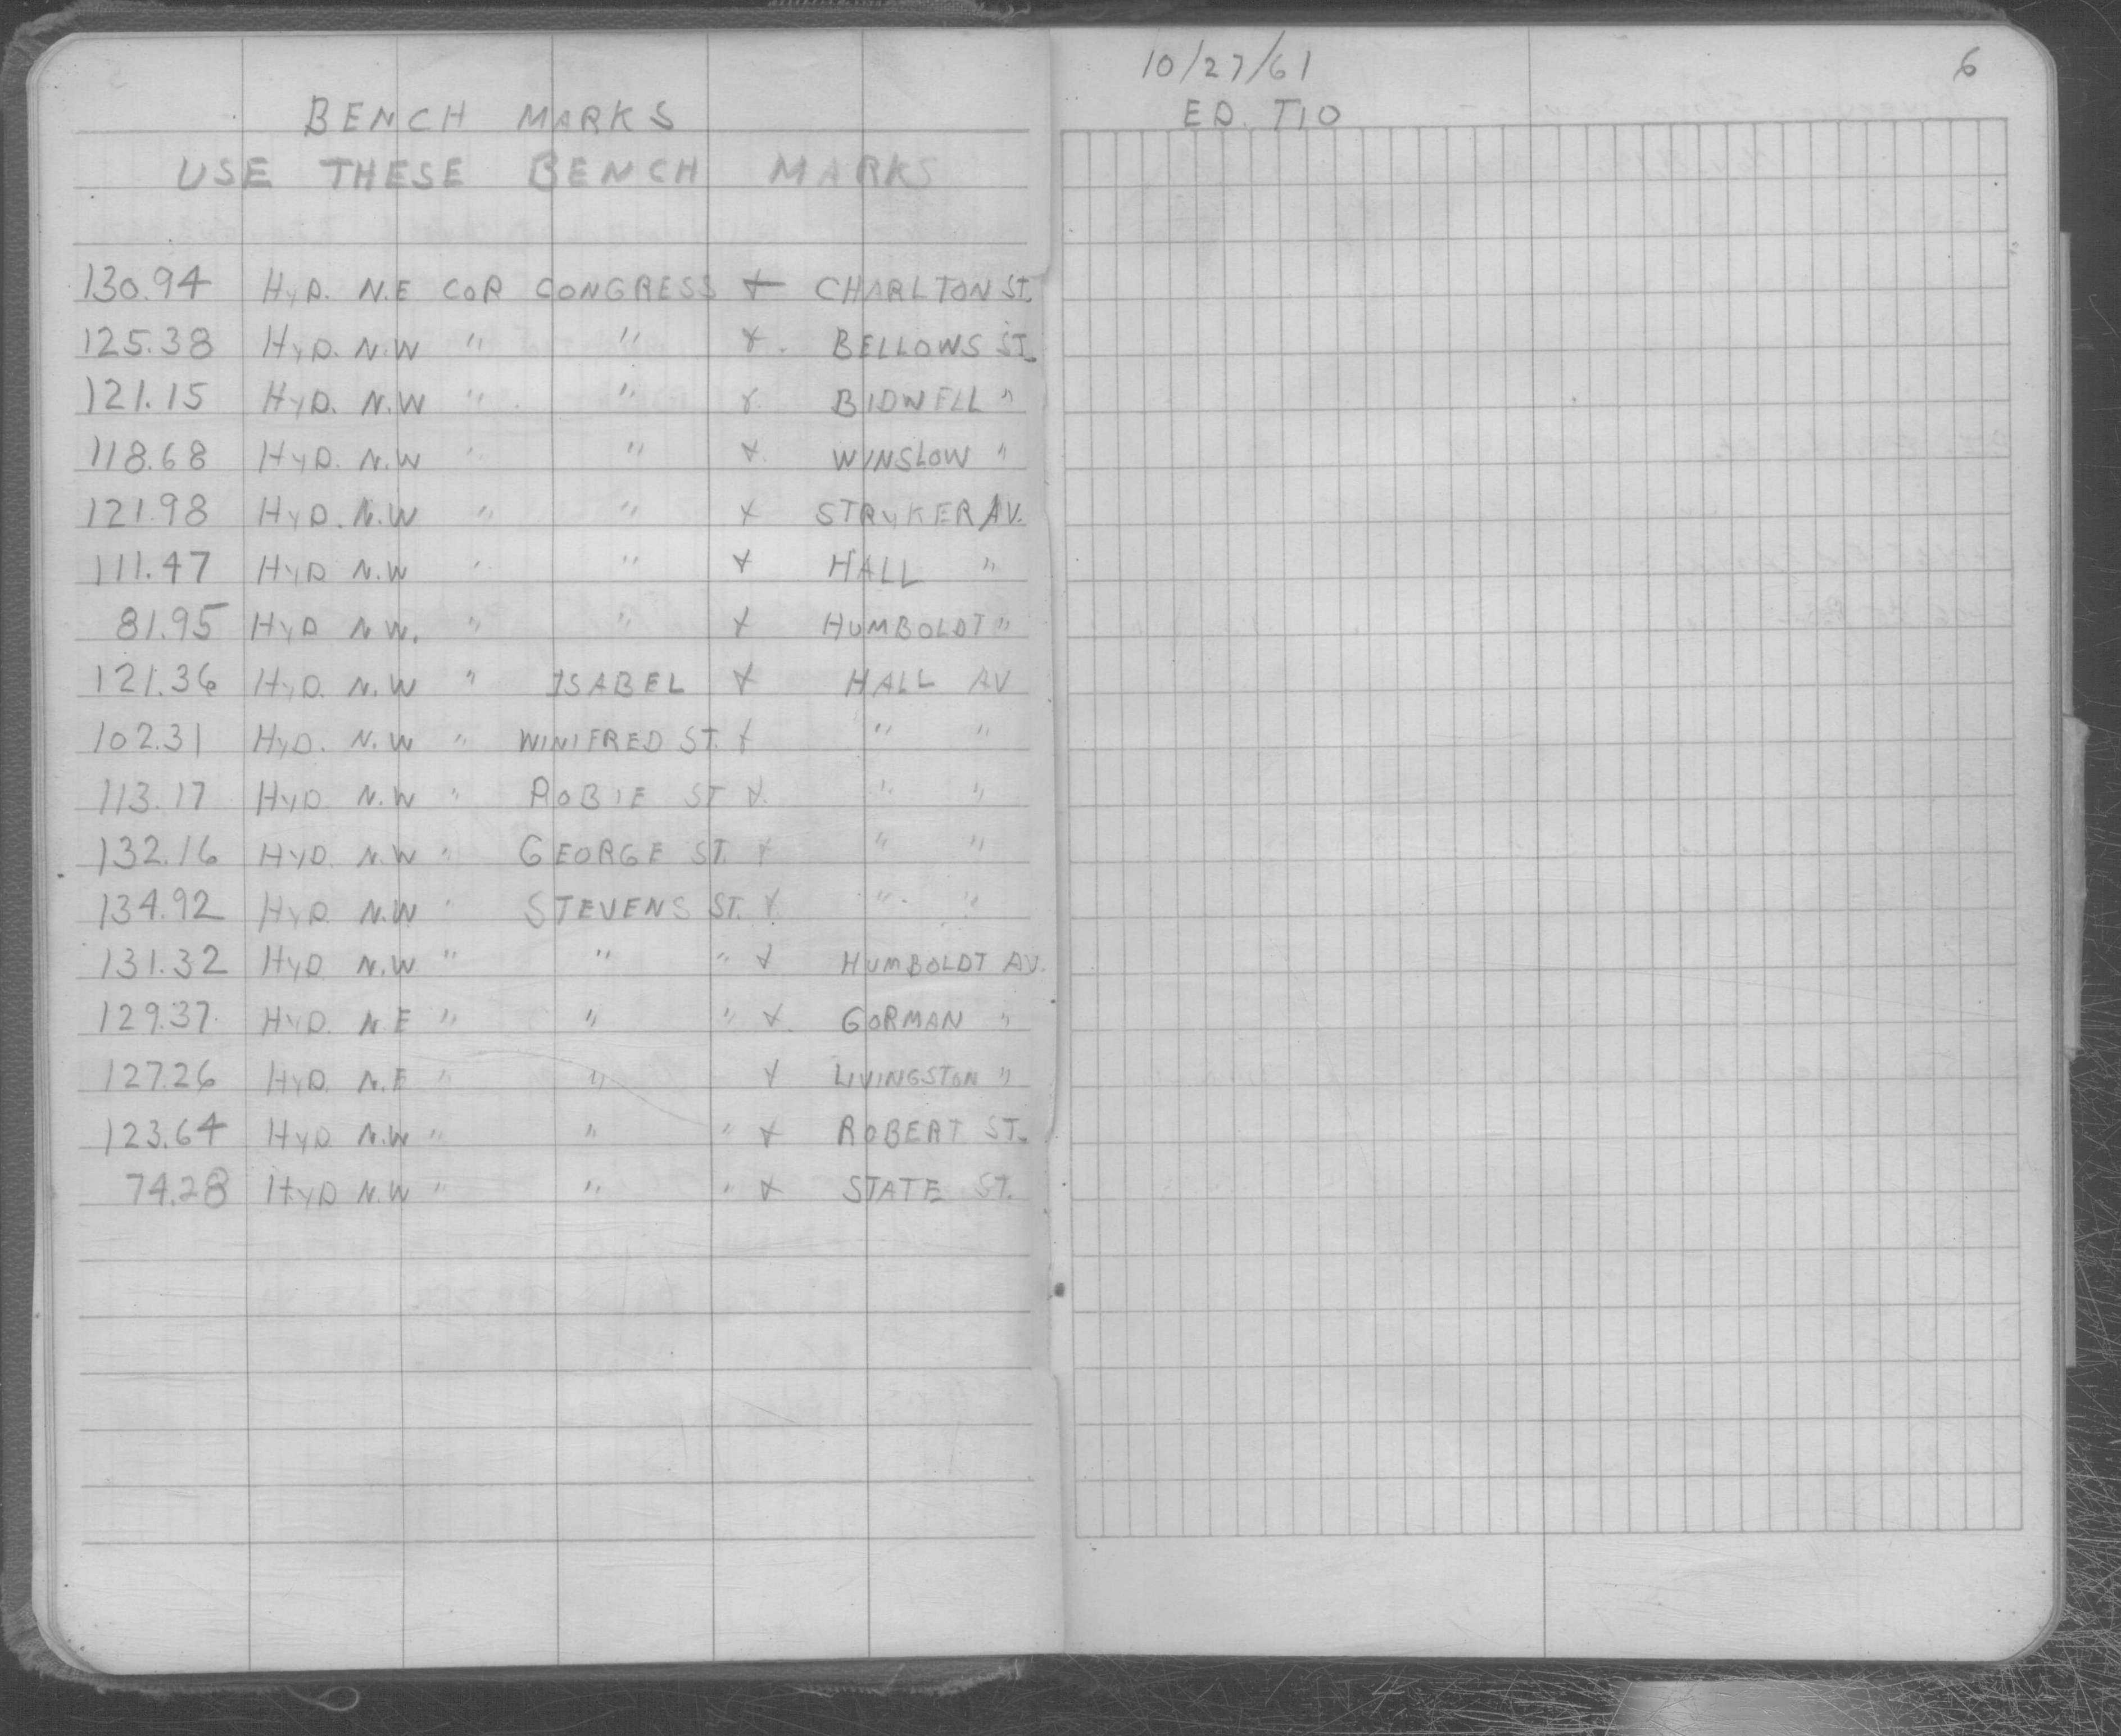 BENCH MARKS
USE THESE BENCH MARKS
130.94 HYD. N.E COR CONGRESS + CHARLTON ST.
125.38 HYD. N.W " " + BELLOWS ST.
121.15 HYD. N.W " " + BIDWELL "
118.68 HYD. N.W " " + WINSLOW "
121.98 HYD. N.W " " + STRYKER AV.
111.47 HYD N.W " " + HALL "
81.95 HYD N W. " " + HUMBOLDT "
121.36 HYD. N.W " ISABEL + HALL AV
102.31 HYD. N.W " WINIFRED ST. + " "
113.17 HYD N.W " ROBIE ST + " "
132.16 HYD. N.W " GEORGE ST. + " "
134.92 HYD. N.W " STEVENS ST. + " "
131.32 HYD N.W " " " + HUMBOLDT AV.
129.37 HYD. N.E " " " + GORMAN "
127.26 HYD. N.E " " + LIVINGSTON "
123.64 HYD N.W " " " + ROBERT ST.
74.28 HYD N.W " " " + STATE ST.
10/27/61
6
ED. TIO